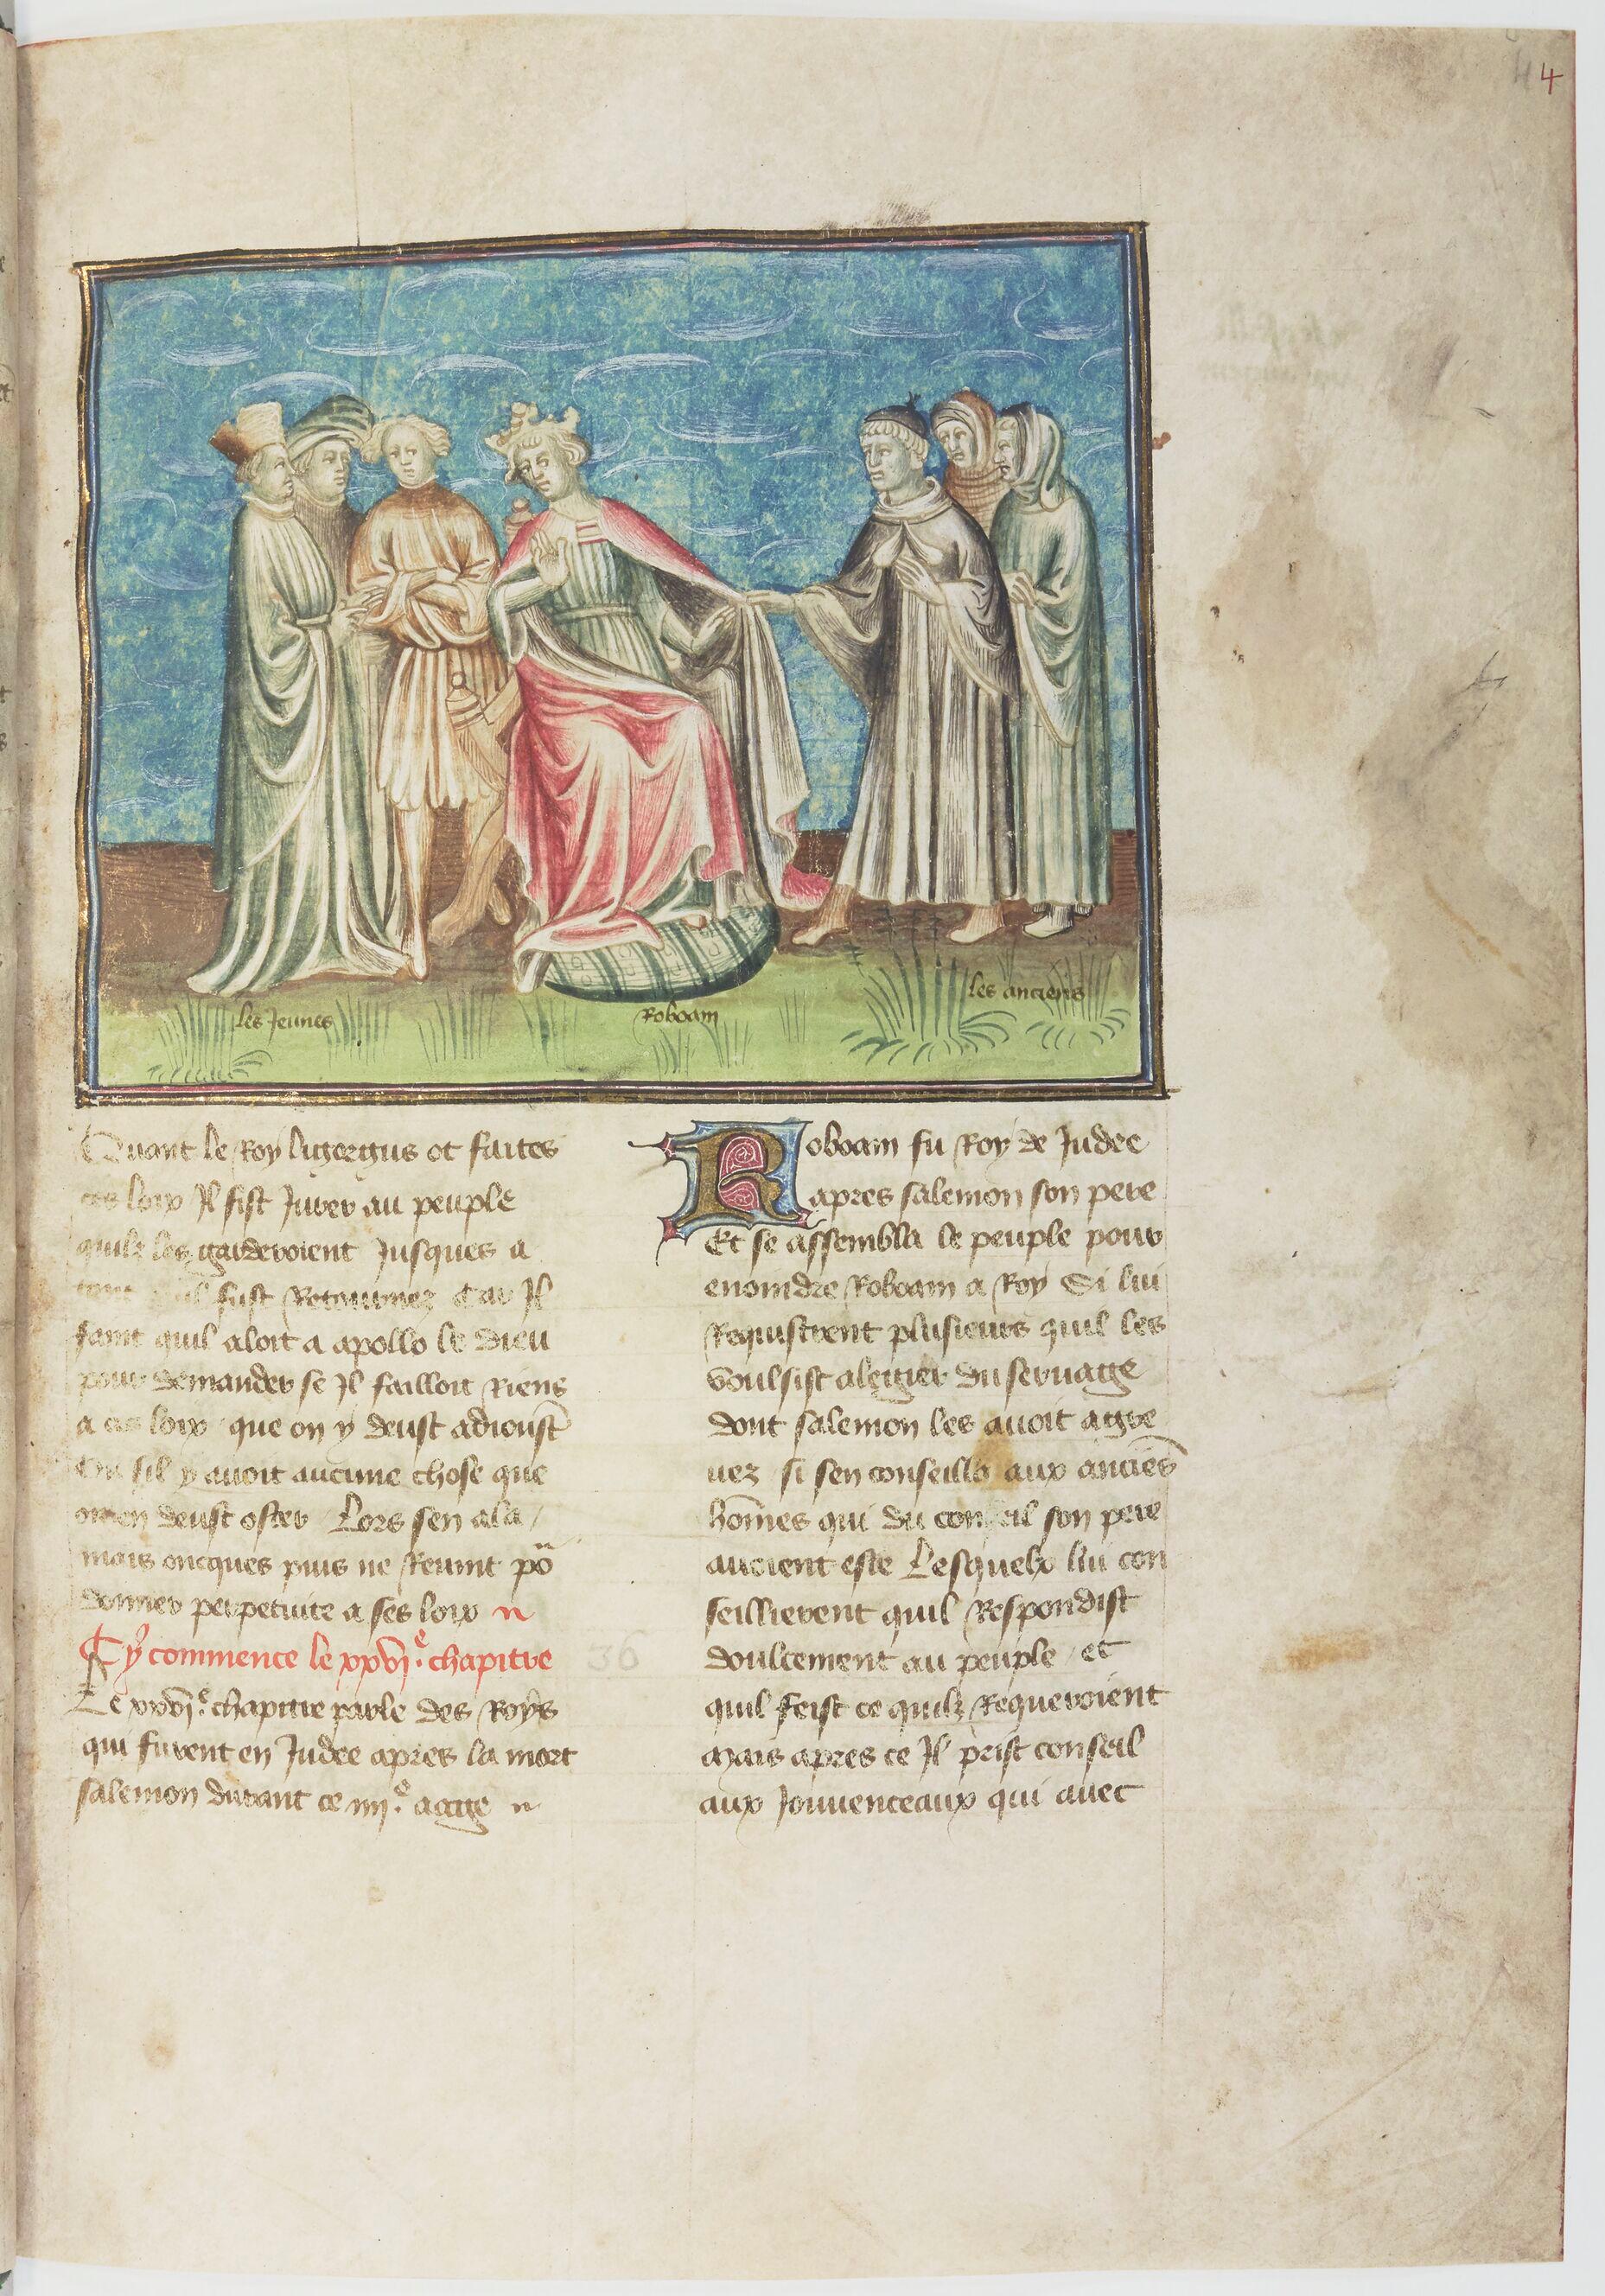 44
les Jeunes
Roboam
les anciens
Quant le Roy ligorgus ot faites
ces loix Il fist Jurer au peuple
quilz les garderoient Jusques a
quil fust Retournez Car Il
faint quil aloit a apollo le dieu
pour demander se Il failloit Riens
a ces loix que on y deust adioust̄
Ou sil y auoit aucune chose que
on en deust oster Lors sen ala
mais oncques puis ne Reuint po
donner perpetuite a ses loix
Cy commence le xxvj.e chapitre
Le xxvj.e chapitre parle des Roys
qui furent en Judee apres la mort
salemon durant ce iiij.e aage
36
Roboam fu Roy de Judee
apres salemon son pere
Et se assembla le peuple pour
enoindre Roboam a Roy Si lui
Requistrent plusieurs quil les
voulsist alegier du seruage
dont salemon les auoit agre
uez si sen conseilla aux anciēs
hom̄es qui du conseil son pere
auoient este Lesquelx lui con
seillierent quil Respondist
doulcement au peuple et
quil feist ce quilz Requeroient
Mais apres ce Il prist conseil
aux Jouuenceaux qui auec